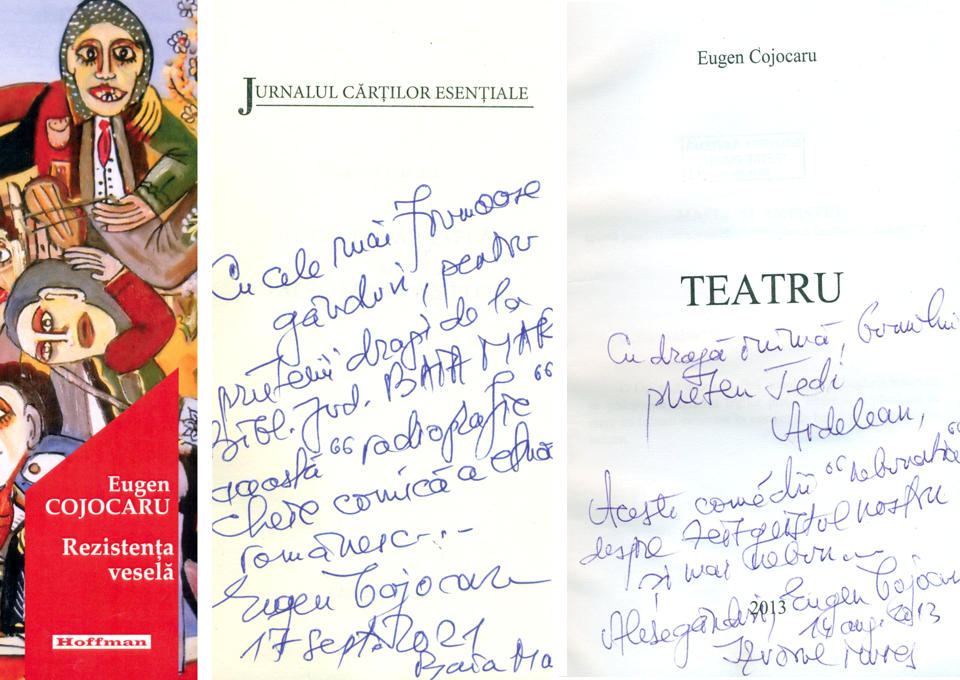 Eugen
COJOCARU
Rezistența
veselă
Hoffman
JURNALUL CĂRȚILOR ESENȚIALE
Cu cele mai frumoase
gânduri, pentru
prietenii dragi de la
Bibl. Jud. BAIA MAR
această "radiografie"
cheie comică a
românesc...
Eugen Cojocaru
17 sept. 2021
Baia Ma
Eugen Cojocaru
TEATRU
Cu dragă inimă, bunului
prieten Tedi
Ardelean,
Aceste comedii "nebunatice"
despre Zeitgeistul nostru
și mai nebun...
Alese gânduri, Eugen Cojocaru
2013
14 aug. 2013
Izvorul Mureș